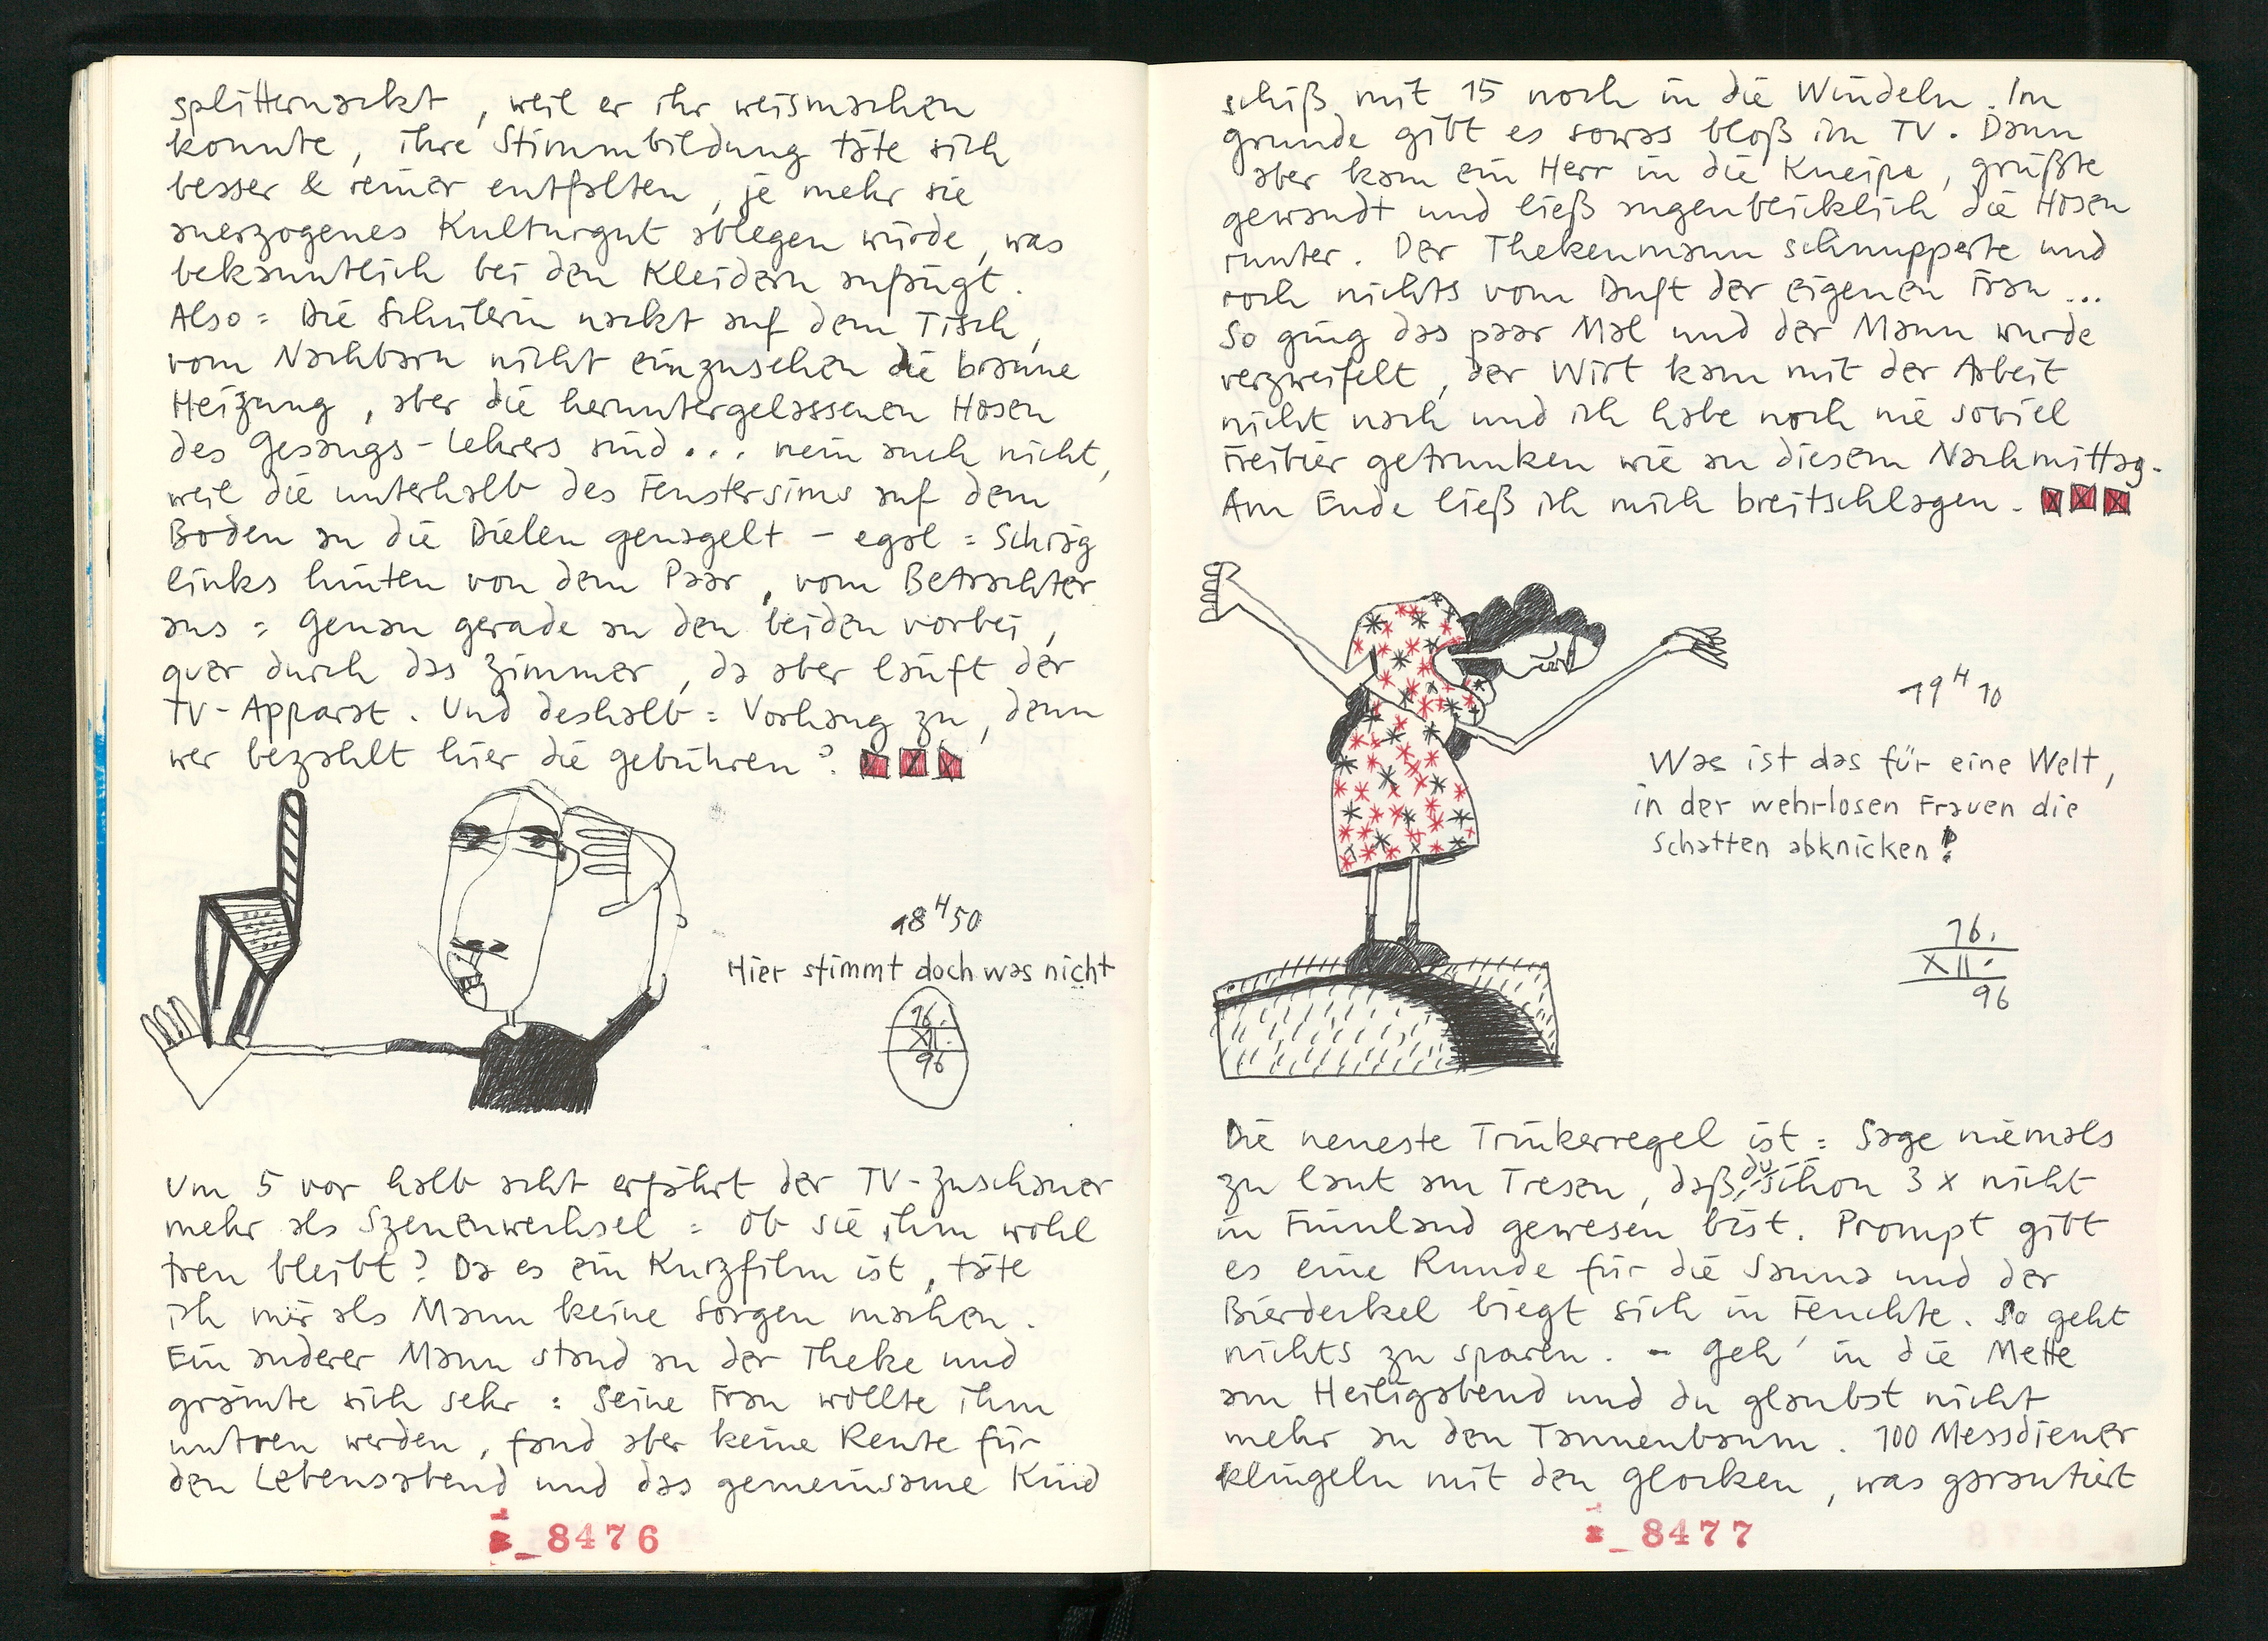 splitternackt, weil er ihr weismachen
konnte, ihre Stimmbildung täte sich
besser & reiner entfalten, je mehr sie
anerzogenes Kulturgut ablegen würde, was
bekanntlich bei den Kleidern anfängt.
Also = Die Schülerin nackt auf dem Tisch,
vom Nachbarn nicht einzusehen die braune
Heizung, aber die heruntergelassenen Hosen
des Gesangs-Lehrers sind... nein auch nicht,
weil die unterhalb des Fenstersims auf dem
Boden an die Dielen genagelt - egal = Schräg
links hinten von dem Paar, vom Betrachter
aus = Genau gerade an den beiden vorbei,
quer durch das Zimmer, da aber läuft der
TV-Apparat. Und deshalb = Vorhang zu, denn
wer bezahlt hier die Gebühren?
18 H 50
Hier stimmt doch was nicht
16.
XII.
96
Um 5 vor halb acht erfährt der TV-Zuschauer
mehr als Szenenwechsel = Ob sie ihm wohl
treu bleibt? Da es ein Kurzfilm ist, täte
ich mir als Mann keine Sorgen machen.
Ein anderer Mann stand an der Theke und
grämte sich sehr = Seine Frau wollte ihm
untreu werden, fand aber keine Rente für
den Lebensabend und das gemeinsame Kind
8476
schiß mit 15 noch in die Windeln. Im
Grunde gibt es sowas bloß im TV. Dann
aber kam ein Herr in die Kneipe, grüßte
gewandt und ließ augenblicklich die Hosen
runter. Der Thekenmann schnupperte und
roch nichts vom Duft der eigenen Frau...
So ging das paar Mal und der Mann wurde
verzweifelt, der Wirt kam mit der Arbeit
nicht nach und ich habe noch nie soviel
Freibier getrunken wie an diesem Nachmittag.
Am Ende ließ ich mich breitschlagen.
19 H 10
Was ist das für eine Welt,
in der wehrlosen Frauen die
Schatten abknicken?
16.
XII.
96
Die neueste Trinkerregel ist = Sage niemals
zu laut am Tresen, daß du schon 3 x nicht
in Finnland gewesen bist. Prompt gibt
es eine Runde für die Sauna und der
Bierdeckel biegt sich in Feuchte. So geht
nichts zu sparen. - Geh' in die Mette
am Heiligabend und du glaubst nicht
mehr an den Tannenbaum. 100 Messdiener
klingeln mit den Glocken, was garantiert
8477